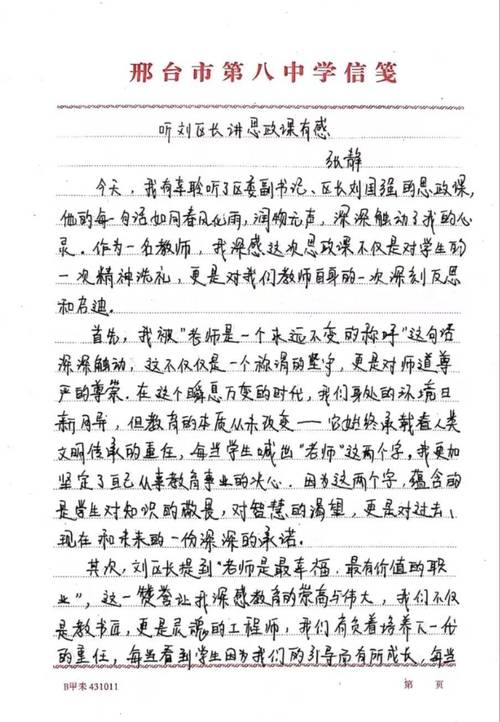 邢台市第八中学信笺
听刘区长讲思政课有感
张静
今天，我有幸聆听了区委副书记、区长刘国强的思政课，
他的每一句话如同春风化雨，润物无声，深深触动了我的心
灵。作为一名教师，我深感这次思政课不仅是对学生的
一次精神洗礼，更是对我们教师自身的一次深刻反思
和启迪.
首先，我被"老师是一个永远不变的称呼"这句话
深深触动，这不仅仅是一个称谓的坚守，更是对师道尊
严的尊崇.在这个瞬息万变的时代，我们身处的环境日
新月异，但教育的本质从未改变——它始终承载着人类
文明传承的重任，每当学生喊出"老师"这两个字，我更加
坚定了自己从事教育事业的决心.因为这两个字，蕴含的
是学生对知识的敬畏，对智慧的渴望，更是对过去、
现在和未来的一份深深的承诺.
其次，刘区长提到"老师是最幸福、最有价值的职
业"，这一赞誉让我深感教育的崇高与伟大，我们不仅
是教书匠，更是灵魂的工程师，我们肩负着培养下一代
的重任，每当看到学生因为我们的引导而有所成长，每当
B甲来431011 第 页